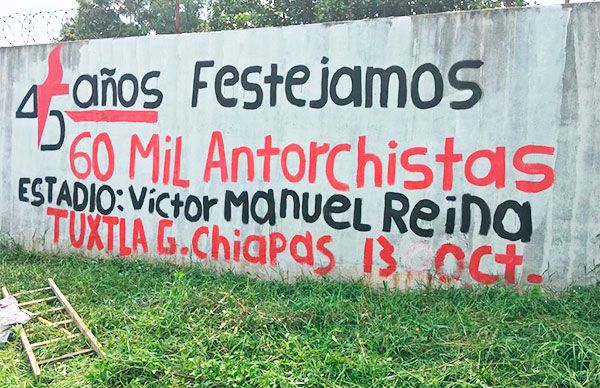 45 años Festejamos
60 MiL Antorchistas
ESTADIO: Víctor Manuel Reina
TUXTLA G. Chiapas 13 Oct.